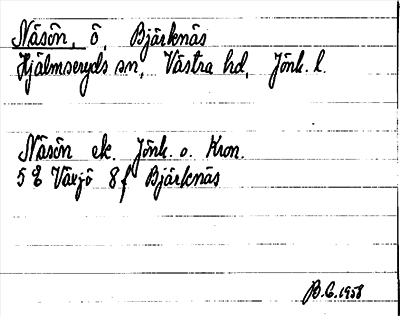 Näsön, ö, Bjärknäs
Hjälmseryds sn, Västra hd, Jönk. l.
Näsön ek. Jönk. o. Kron.
5 E Växjö 8 f Bjärknäs
B.G. 1958